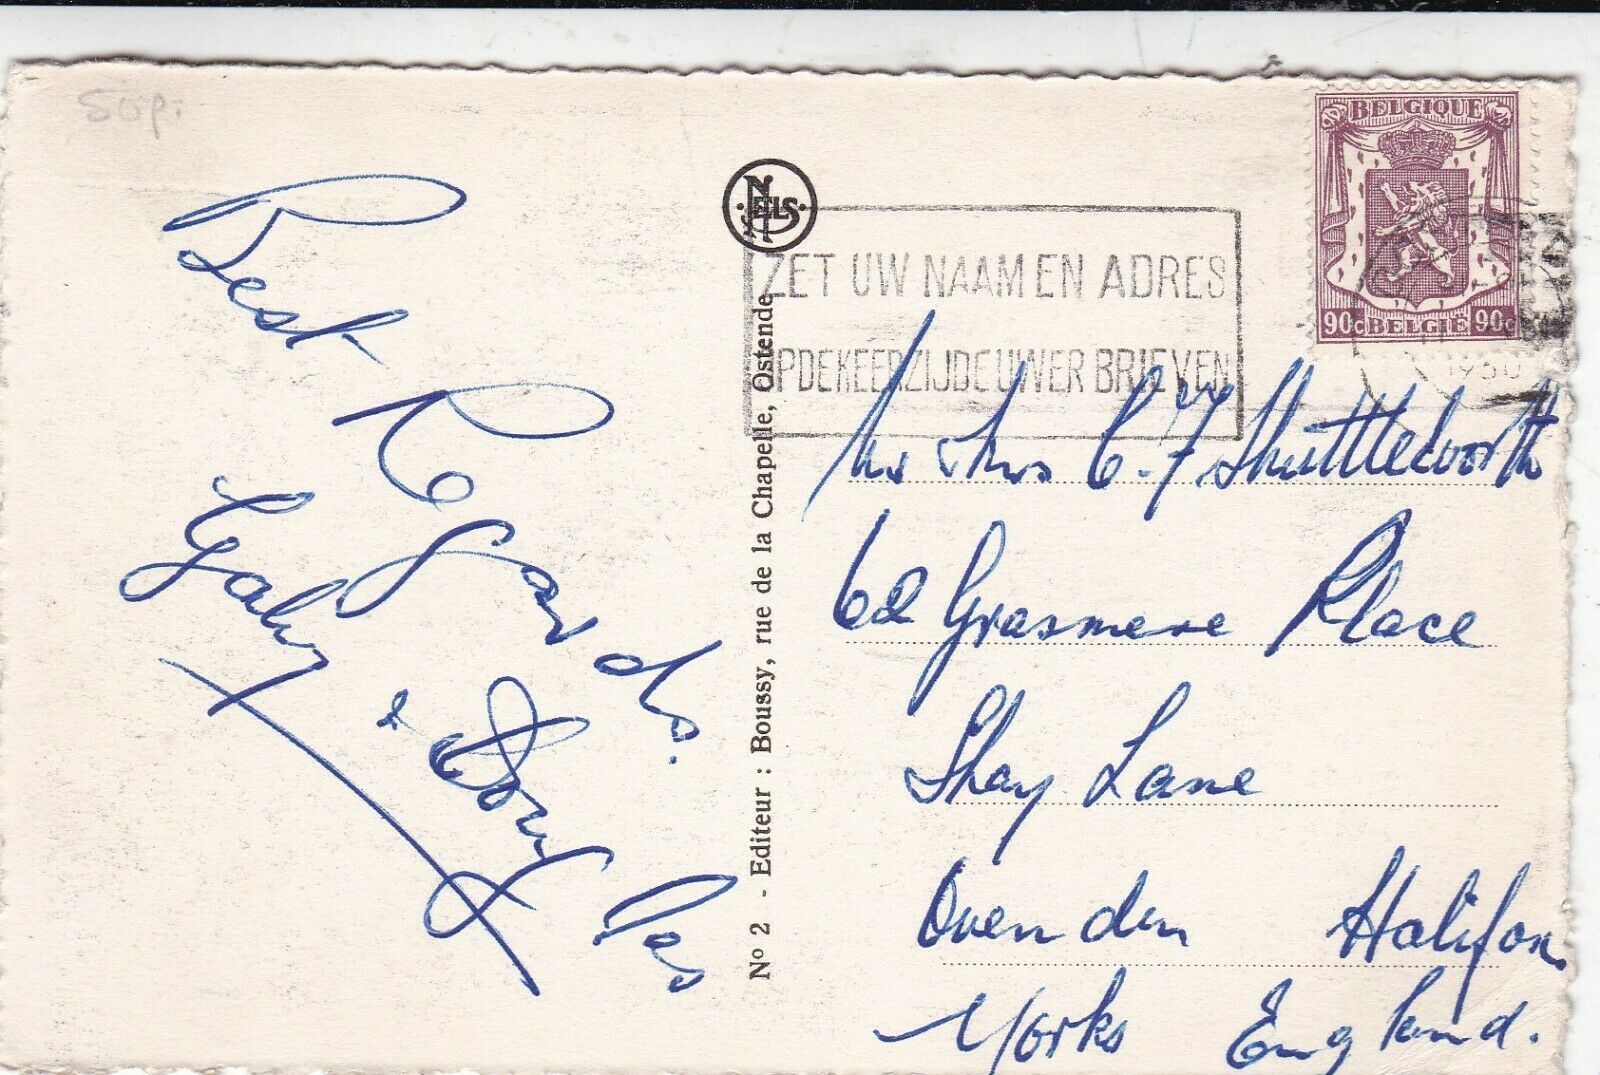 50p.
Best Regards.
Gaby
& Douglas
NELS
ZET UW NAAM EN ADRES
OPDEKEERZIJDE UWER BRIEVEN
BELGIQUE
90c BELGIE 90c
1950
Nº 2 - Editeur : Boussy, rue de la Chapelle, Ostende
Mr & Mrs C. F Shuttleworth
Grasmere Place
Shay Lane
Ovenden Halifax.
Yorks England.